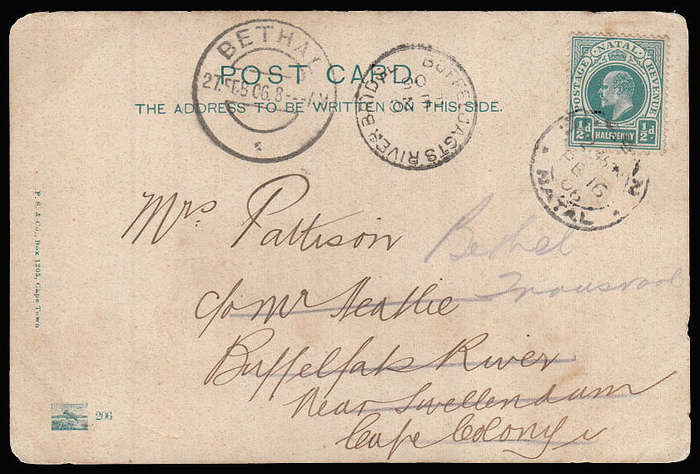 BETHAL
27 FEB 06. 8 - - AM
POST CARD.
THE ADDRESS TO BE WRITTEN ON THIS SIDE.
BUFFELJAGTS RIVER BRIDGE
POSTAGE NATAL REVENUE
½d HALFPENNY ½d
FE 16
06
NATAL
Mrs Pattison
Bethel
c/o Mr Neathie
Buffelfats River
Near Swellendam
Cape Colony
P. S. & Co., Box 1205, Cape Town
206